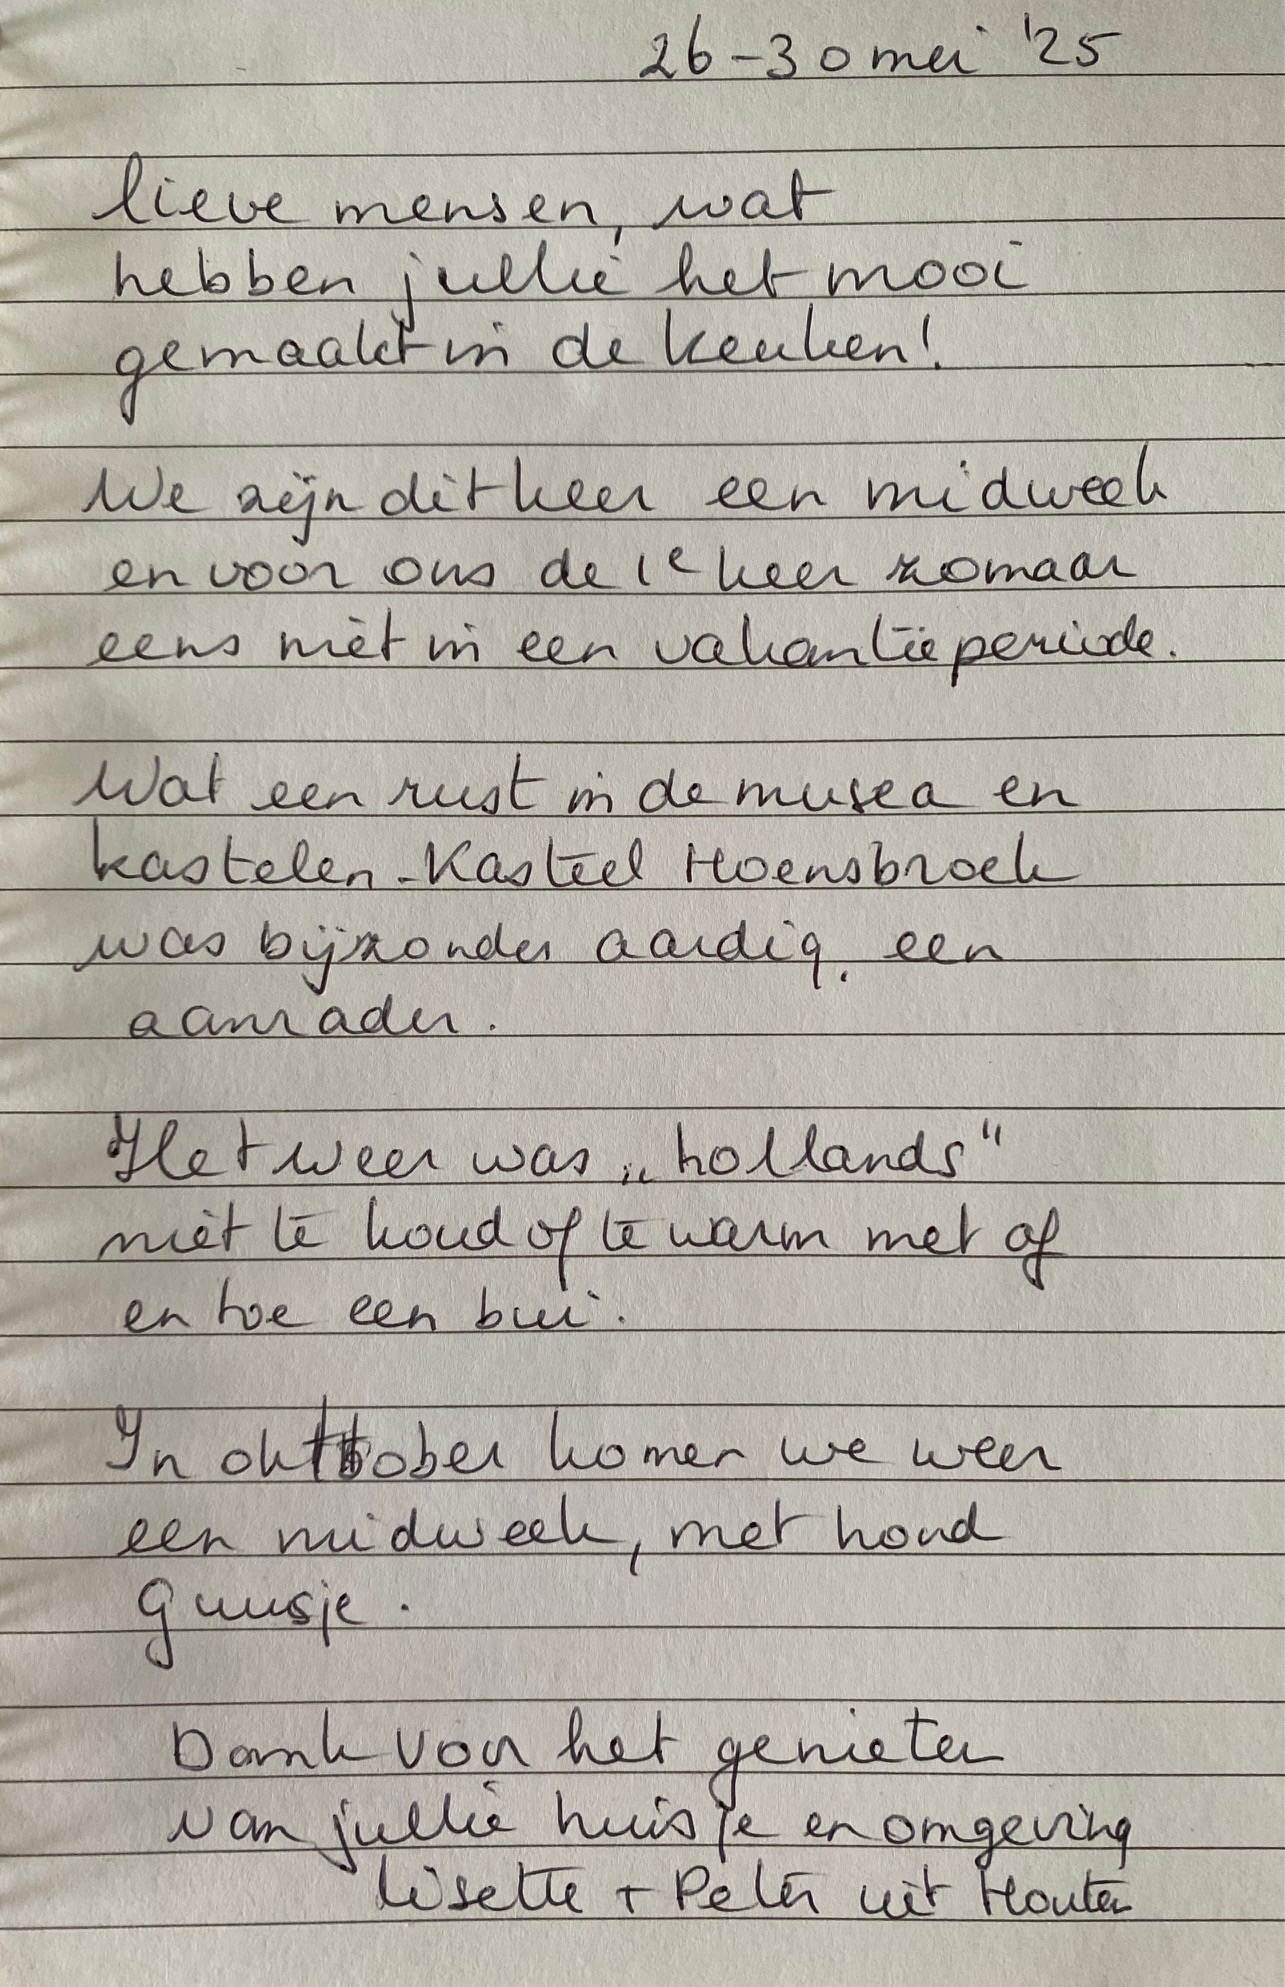 26-30 mei '25
lieve mensen, wat
hebben jullie het mooi
gemaakt in de keuken!
We zijn dit keer een midweek
en voor ons de 1e keer zomaar
eens niet in een vakantieperiode.
Wat een rust in de musea en
kastelen - Kasteel Hoensbroek
was bijzonder aardig, een
aanrader.
Het weer was „hollands"
niet te koud of te warm met af
en toe een bui.
In oktober komen we weer
een midweek, met hond
Guusje.
Dank voor het genieten
van jullie huisje en omgeving
Lisette + Peter uit Houten